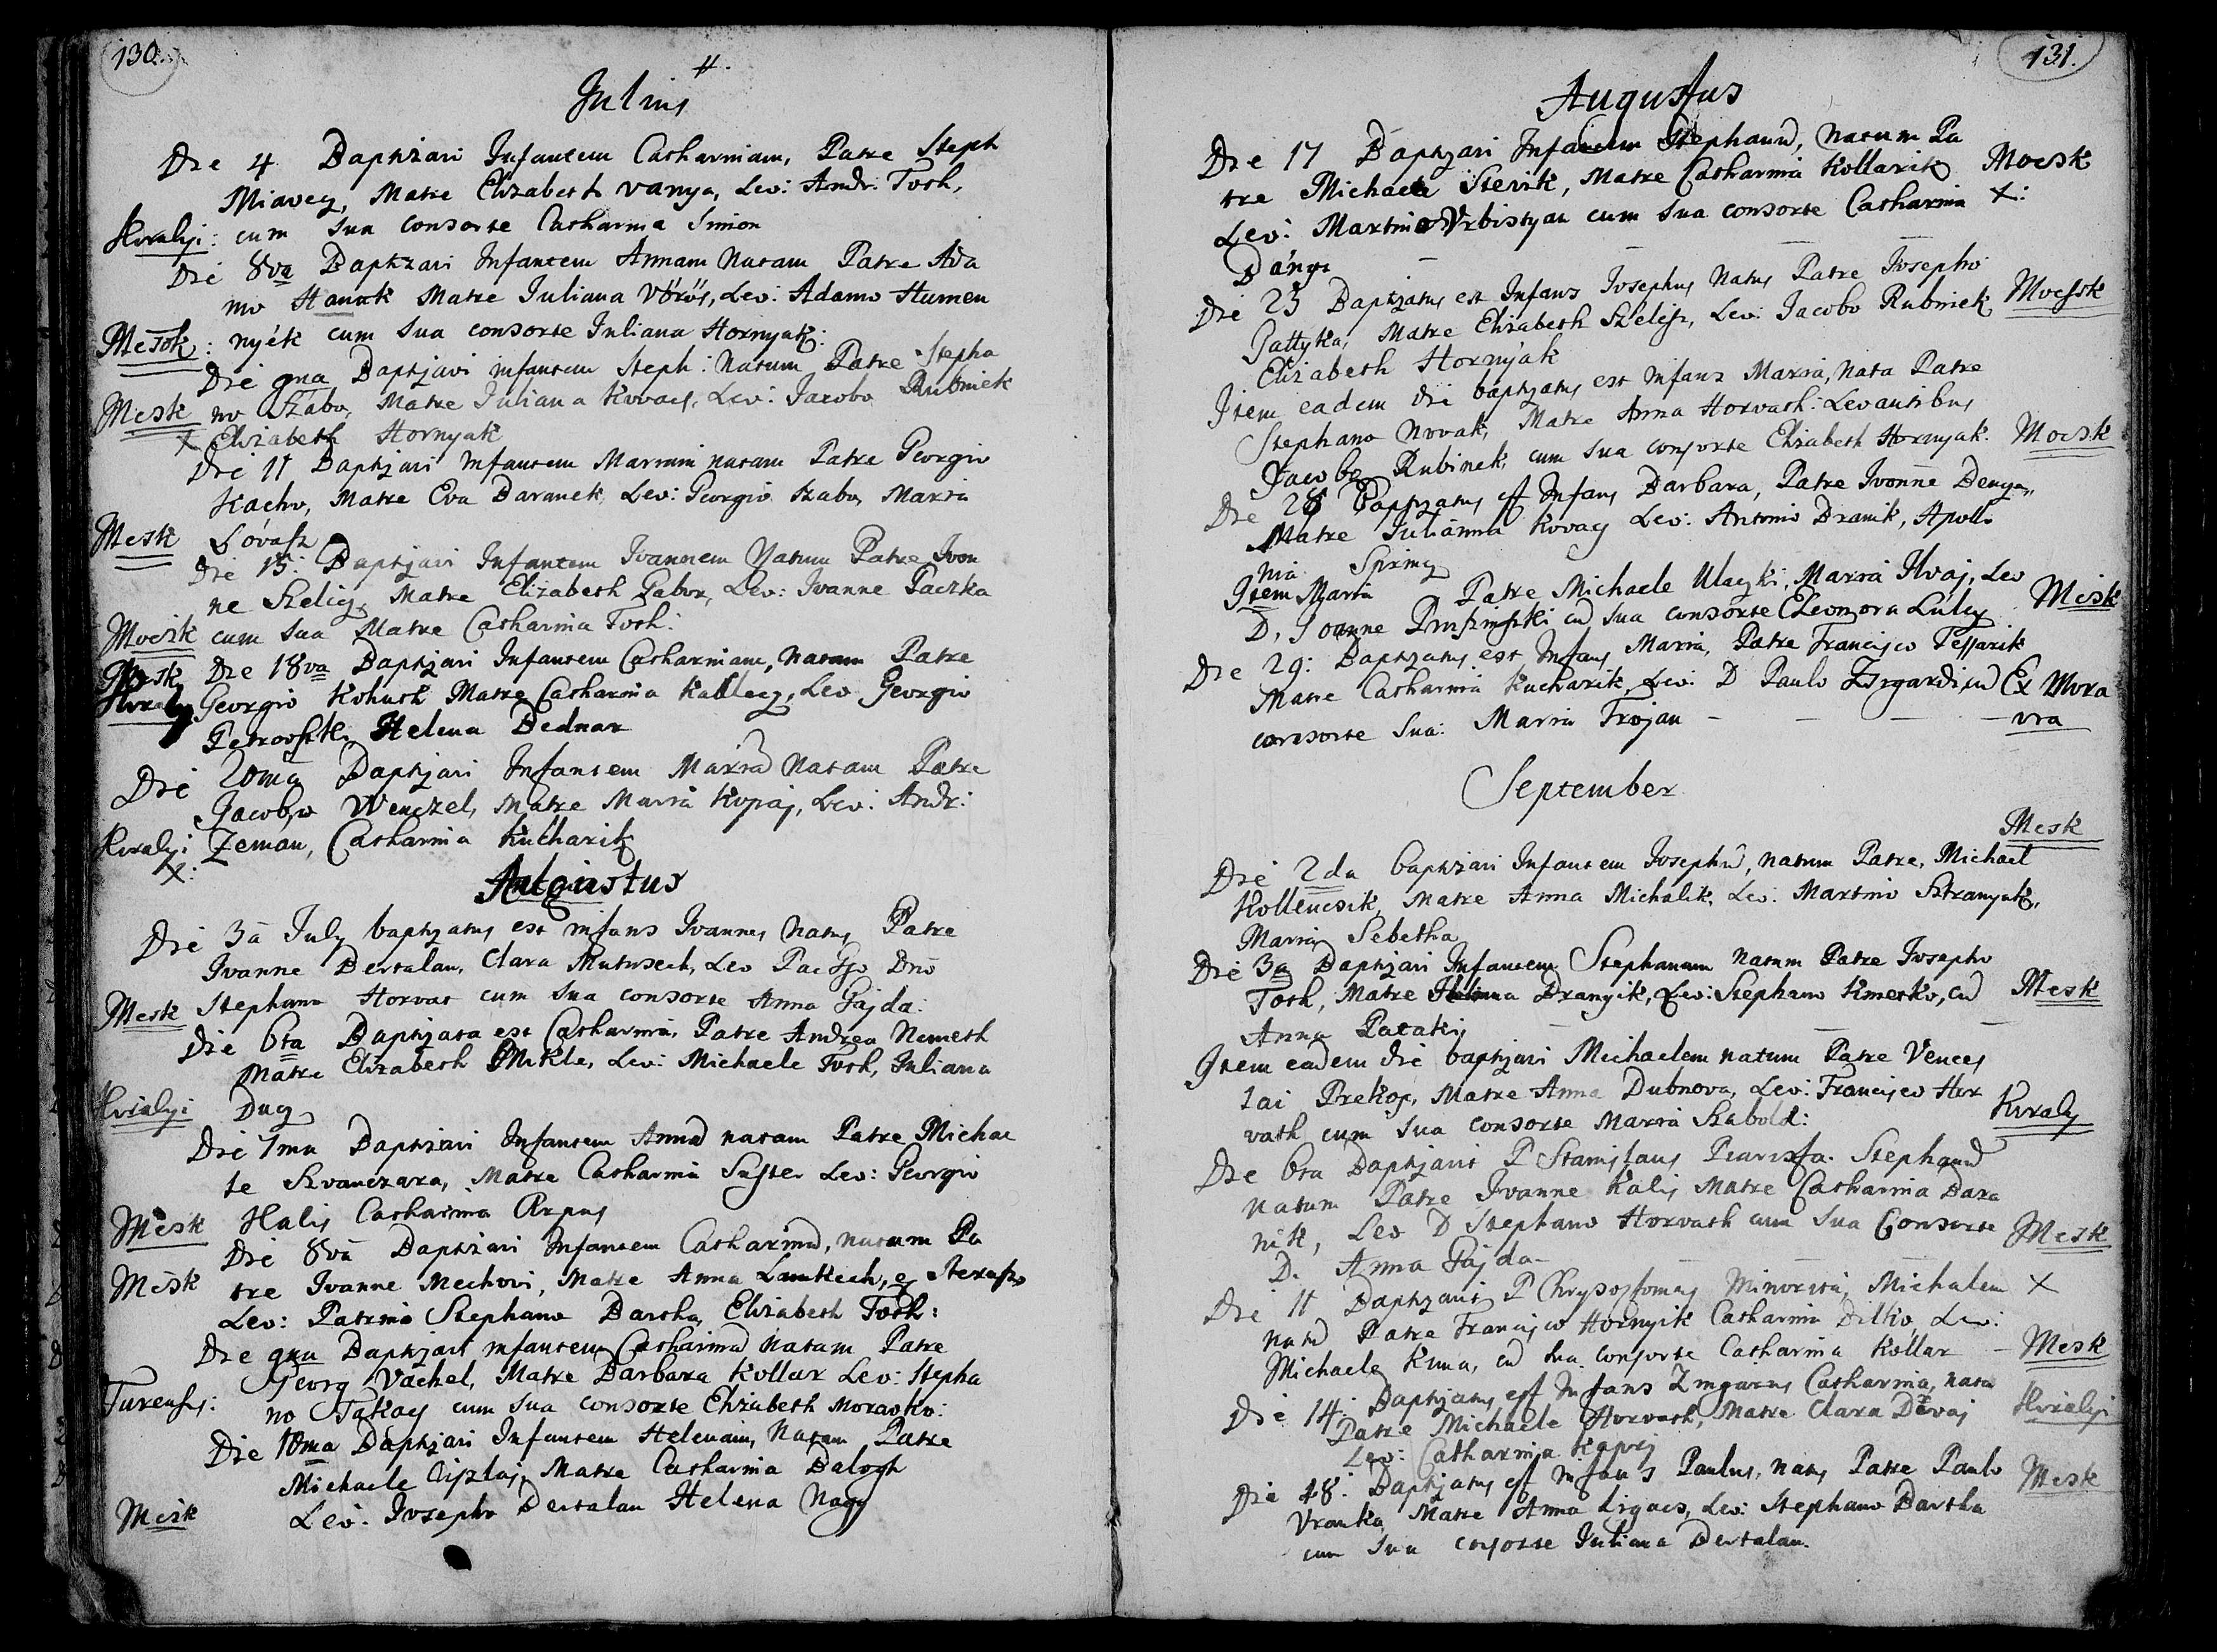 130.
Julius
Die 4 Baptizavi Infantem Catharinam, Patre Steph
Miavecz, Matre Elizabeth vanya, Lev: Andr: Toth,
Kiralyi: cum sua consorte Catharina Simon
Die 8va Baptizavi Infantem Annam natam Patre Ada
mo Hanak Matre Juliana Vörös, Lev: Adamo Humen
Mesk: nyék cum sua consorte Juliana Hornyak:
Die 9na Baptizavi infantem Steph: Natum Patre Stepha
Mesk no Szabo, Matre Juliana Kovacs, Lev: Jacobo Rubinek
x Elizabeth Hornyak
Die 11 Baptizavi Infantem Mariam natam Patre Georgio
Kacho, Matre Eva Baranek Lev: Georgio Szabo, Maria
Mesk Lóvasz
Die 15: Baptizavi Infantem Joannem Natum Patre Joan
ne Szelig, Matre Elizabeth Gabor, Lev: Joanne Paczka
Mocsk cum sua Matre Catharina Toth:
Mesk Die 18va Baptizavi Infantem Catharinam, natam Patre
Kiraly Georgio Kohuth Matre Catharina Kallecz, Lev Georgio
Petrovszki Helena Bednar
Die 20ma Baptizavi Infantem Mariā Natam Patre
Jacobo Wenczel, Matre Maria Kopaj, Lev: Andr:
Kiralyi Zeman, Catharina Kucharik
x:
Augustus
Die 3a July baptizatus est infans Joannes Natus Patre
Joanne Bertalan, Clara Lev Dno
Mesk Stephano Horvat cum sua consorte Anna Gajda:
Die 6ta Baptizata est Catharina, Patre Andrea Nemeth
Matre Elizabeth Mikle, Lev: Michaele Toth, Juliana
Kiralyi Dug
Die 7ma Baptizavi Infantem Annā natam Patre Michae
le Szvanczara, Matre Catharina Suster Lev: Georgio
Mesk Halis Catharina Arpas
Die 8va Baptizavi Infantem Catharinā, natam Pa
Mesk tre Joanne Mechovi, Matre Anna
Lev: Patrinis Stephano Bartha, Elizabeth Toth:
Die 9na Baptizavi infantem Catharinā Natam Patre
Georg Vachel, Matre Barbara Kollar Lev: Stepha
Turensis: no Takacs cum sua consorte Elizabeth Moravko:
Die 10ma Baptizavi Infantem Helenam, Natam Patre
Michaele Ciszlaj, Matre Catharina Balogh
Mesk Lev: Josepho Bertalan Helena Nagy
131.
Augustus
Die 17 Baptizavi Infantem Stephanū, Natum Pa
tre Michaele Stevik, Matre Catharina Kollarik Mocsk
Lev: Martino Vrbistyan cum sua consorte Catharina x:
Dányi
Die 23 Baptizatus est Infans Josephus Natus Patre Josepho
Pattyka, Matre Elizabeth Szelisz, Lev: Jacobo Rubinek Mocssk
Elizabeth Hornyak
Item eadem die baptizatus est infans Maria, Nata Patre
Stephano Novak, Matre Anna Horvath: Levantibus
Jacobo Rubinek, cum sua consorte Elizabeth Hornyak. Mocsk
Die 28 Baptizatus est Infans Barbara, Patre Joanne Benya
Matre Julianna Kovacs Lev: Antonio Dranik, Apollo
nia Spring
Item Maria Patre Michaele Ulaczki, Maria Hvaj, Lev
D, Joanne cū sua consorte Eleonora Luley Mesk
Die 29: Baptizatus est Infans Maria, Patre Francisco Tessarik
Matre Catharina Kucharik, Lev: D Paulo Zsigardi cū Ex Mora
consorte sua: Maria Trojan - via
September
Mesk
Die 2da baptizavi Infantem Josephū, natum Patre, Michael
Kollencsik, Matre Anna Michalik, Lev: Martino Sztranyak,
Maria Sebetha
Die 3a Baptizavi Infantem Stephanum Natum Patre Josepho
Toth, Matre Helena Dranyik, Lev: Stephano Kmetko, cū Mesk
Anna Pataki
Item eadem die baptizavi Michaelem natum Patre Vences
lai Prekop, Matre Anna Dubnova, Lev: Francisco Hor
vath cum sua consorte Maria Szabold: Kiraly
Die 6ta Baptizavit P Stanislaus Piarista. Stephanū
Natum Patre Joanne Kalis Matre Catharina Bara
nik, Lev D Stephano Horvath cum sua Consorte Mesk
D. Anna Gajda -
Die 11 Baptizavit P Chrysostomus Minorita, Michalem x
natū Patre Francisco Hornyik Catharina Ditko, Lev:
Michaele Kuna, cū sua consorte Catharina Kollar - Mesk
Die 14: Baptizatus est Infans Zingarus Catharina, nata
Patre Michaele Horvath, Matre Clara Dévaj Kiralyi
Lev: Catharina Kaproj
Die 18: Baptizatus est infans Paulus, natus Patre Paulo Mesk
Vranka, Matre Anna Ligacs, Lev: Stephano Bartha
cum sua consorte Juliana Bertalan.